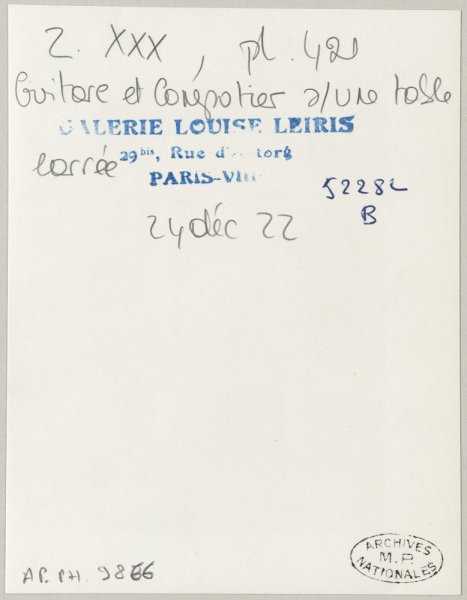 Z. XXX, pl. 420
Guitare et Compotier s/une table
GALERIE LOUISE LEIRIS
carrée 29bis, Rue d'Astorg
PARIS-VIII
52282
B
24 déc 22
AP. PH. 9866
ARCHIVES
M.P.
NATIONALES